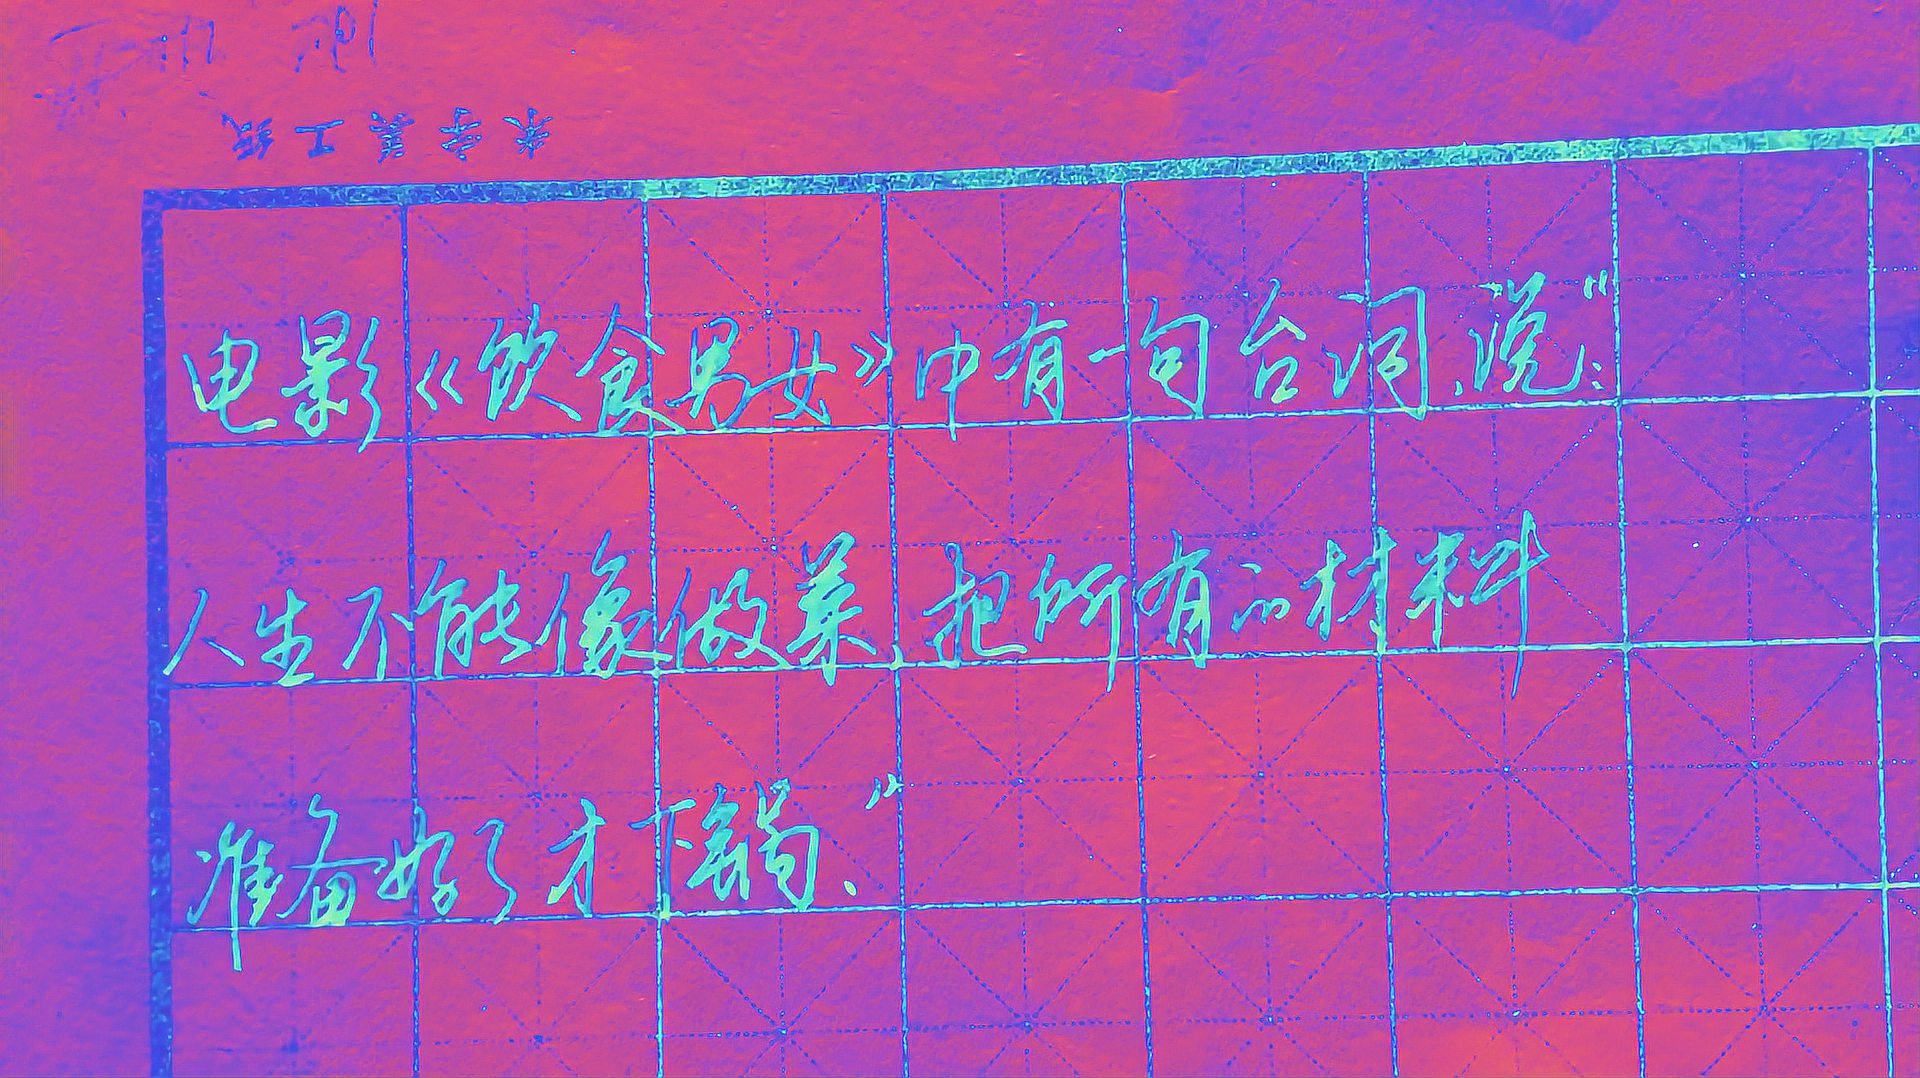 电影《饮食男女》中有一句台词,说:“
人生不能像做菜,把所有的材料
准备好了才下锅.”